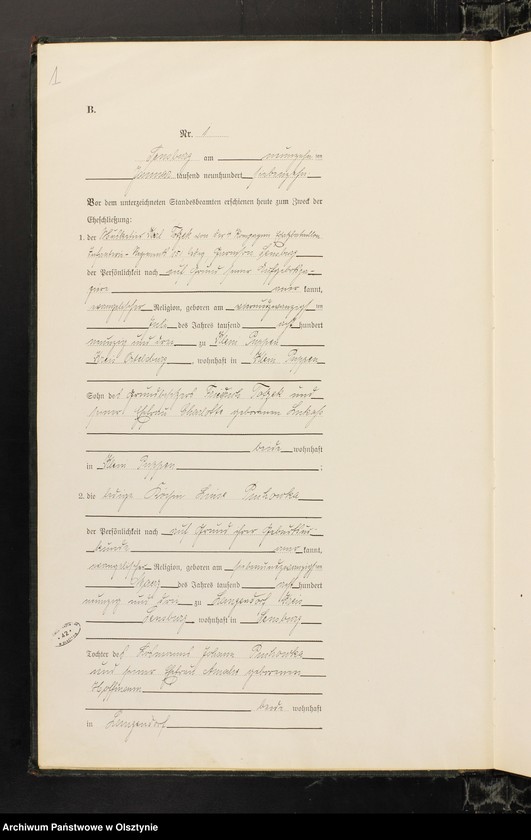 1
B.
Nr. 1
Sensburg am neunzehn ten
Januar tausend neunhundert siebenzehn
Vor dem unterzeichneten Standesbeamten erschienen heute zum Zweck der
Eheschließung:
1. der Musketier Karl Totzek von der Kompagnie
Infanterie-Regiments ledig Garnison Sensburg
der Persönlichkeit nach auf Grund seiner
aner kannt,
evangelischer Religion, geboren am vierundzwanzigsten
des Jahres tausend acht hundert
neunzig und drei zu Klein Puppen
Kreis Ortelsburg, wohnhaft in Klein Puppen
Sohn des Grundbesitzers Friedrich Totzek und
seiner Ehefrau Charlotte geborenen
beide wohnhaft
in Klein Puppen;
2. die ledige Köchin
der Persönlichkeit nach auf Grund ihrer Geburtsur-
kunde aner kannt,
evangelischer Religion, geboren am siebenundzwanzigsten
März des Jahres tausend acht hundert
neunzig und drei zu Langendorf Kreis
Sensburg, wohnhaft in Sensburg
42
Tochter des Johann
und seiner Ehefrau Amalie geborenen
Hoffmann
beide wohnhaft
in Langendorf
Archiwum Państwowe w Olsztynie